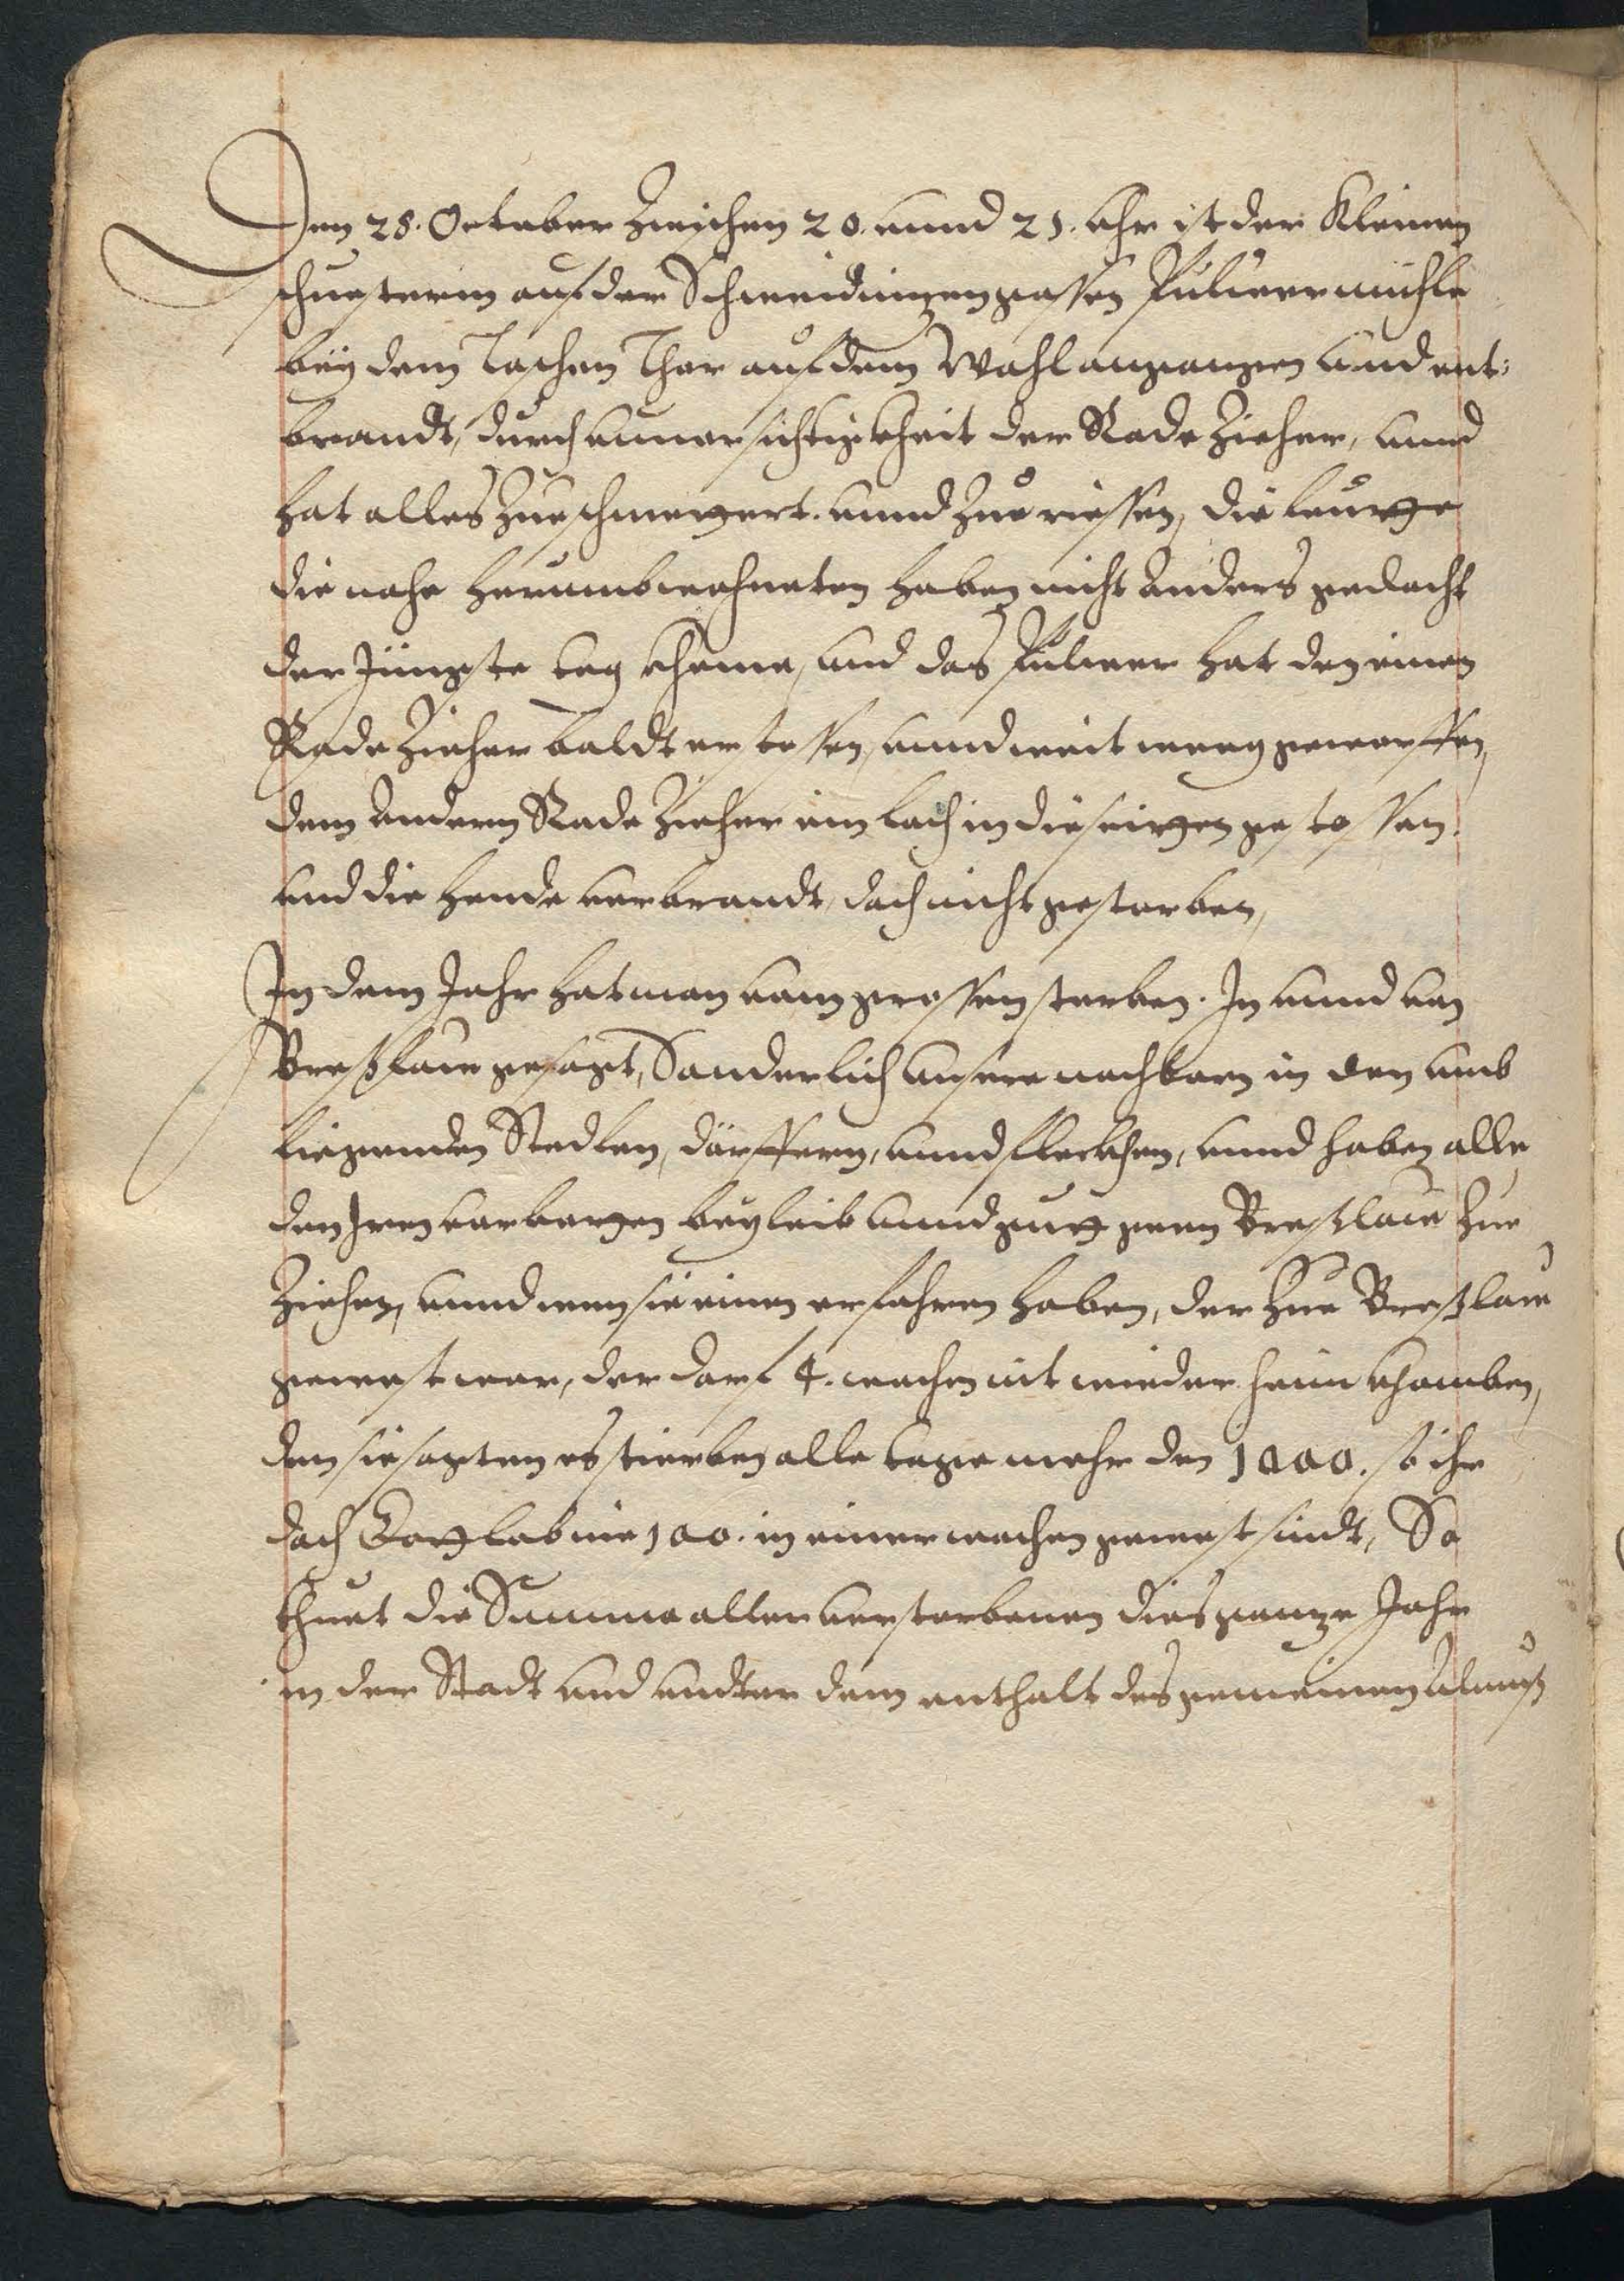 Den 28. October Zwischen 20. vnnd 21. vhr ist der Kleinen
schusterin auf der Schweidnizengassen Puluermühle
bey dem Taschen Thor auf dem Wahl angangen vnd ent:
brandt, durch vnuorsichtigkheit der Rade Zieher, vnnd
hat alles Zueschmettert. vnnd Zuerissen, die leutte
die nahe herumb wohneten haben nicht anders gedacht
der Jüngste tag kheme, vnd das Puluer hat den einen
Rade Zieher baldt erstossen, vnnd weit weeg geworffen,
dem andern Rade Zieher ein loch in die seitten gestossen.
vnd die hende verbrandt, doch nicht gestorben,
In dem Jahr hat man vom grossen sterben. In vnnd von
Breßlaw gesagt, Sonderlich vnsere nachbarn in den umb
liegenden Stedten, dörffern, vnnd fleckhen, vnnd haben alle
den Iren verbotten bey leib vnnd gutt geen Breßlaw Zue
Ziehen, vnnd wen sie einen erfahren haben, der Zue Breßlaw
gewest war, der dorf 4. wochen nit wieder heim khomben,
den sie sagten es stierben alle tage mehr den 1000. so ihr
doch Gottlob nie 100. in einer wochen gewest sindt, So
thuet die Summa aller verstorbenen dies gantze Jahr
in der Stadt vnd vndter dem enthalt des gemeinen Almuß